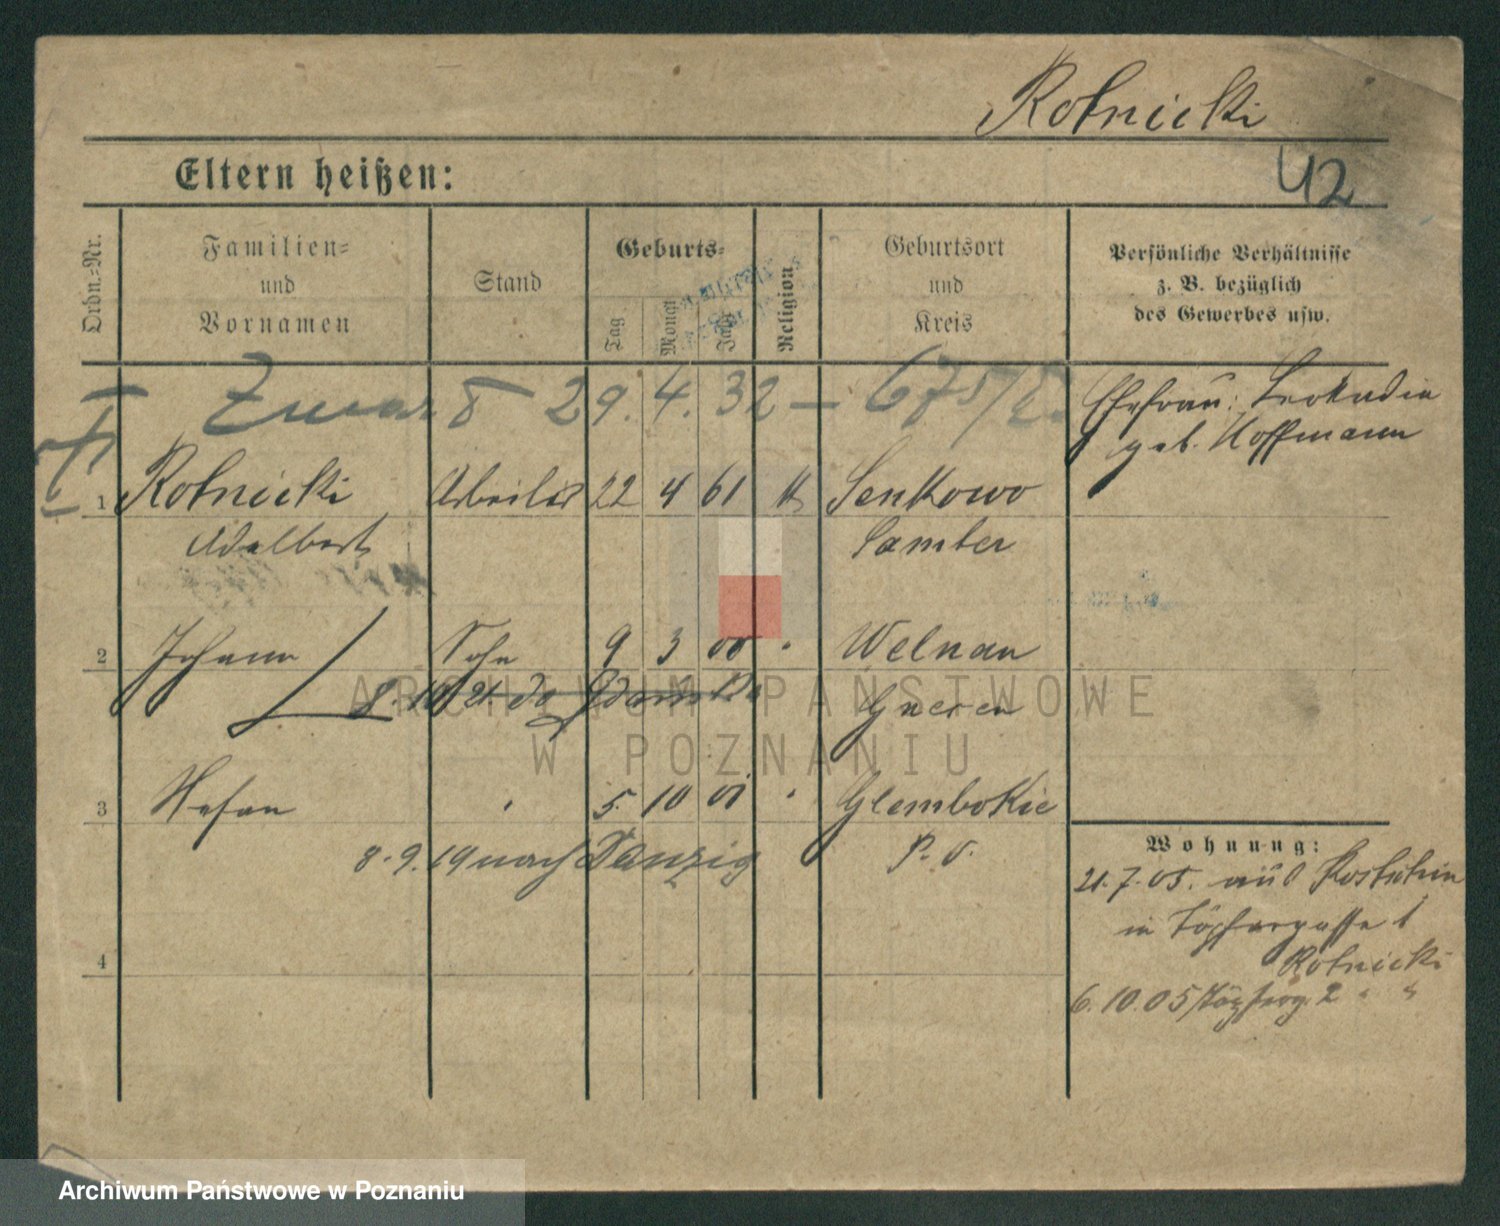 Rotnicki
42
Eltern heißen:
Ordn.=Nr.
Familien=
und
Vornamen
Stand
Geburts=
Tag
Monat
Jahr
Religion
Geburtsort
und
Kreis
Persönliche Verhältnisse
z. B. bezüglich
des Gewerbes usw.
Zmar. 29. 4. 32 — 675/
Ehefrau: Leokadia
geb. Hoffmann
1 Rotnicki Arbeiter 22 4 61 K Senkowo
Adalbert Samter
2 Johann Sohn 9 3 00 " Welnau
8. 10 21. do Gdańska Gnesen
3 Stefan " 5. 10 01 " Glembokie
8. 9. 19 nach Danzig P. O.
Wohnung:
21. 7. 05. aus Kostschin
in Töpfergasse 1
Rotnicki
4
6. 10. 05 Töpferg. 2 " "
ARCHIWUM PAŃSTWOWE
W POZNANIU
Archiwum Państwowe w Poznaniu